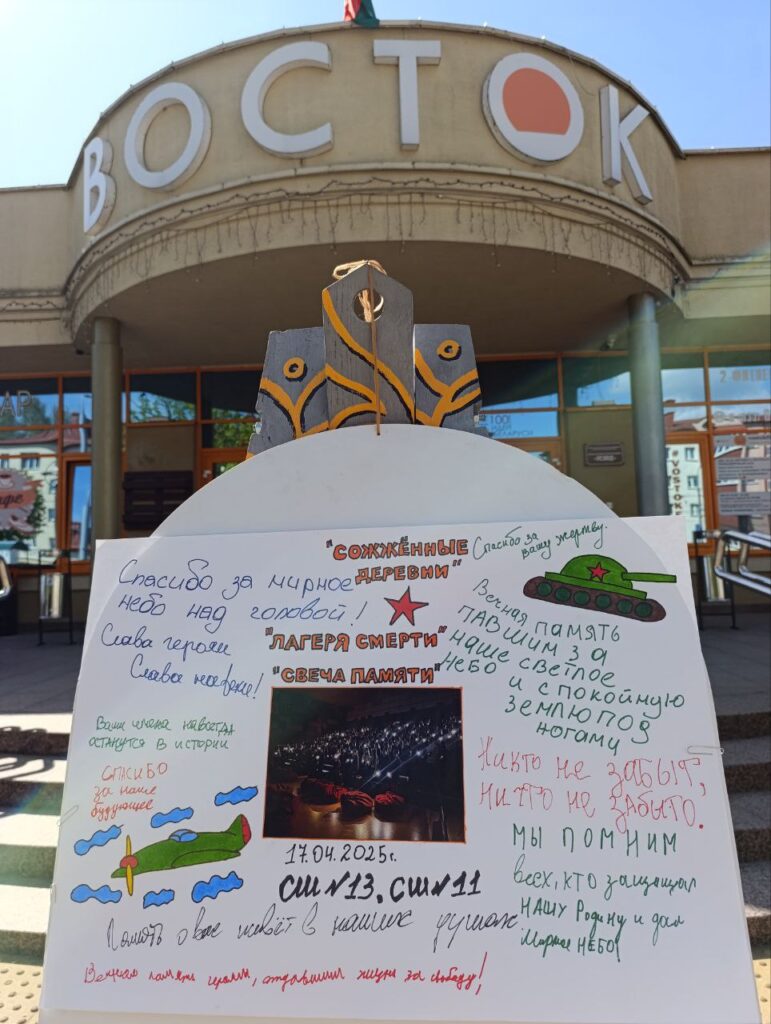 ВОСТОК
АР
100
БЕЛАРУСИ
#VOSTOK
"СОЖЖЁННЫЕ
ДЕРЕВНИ"
"ЛАГЕРЯ СМЕРТИ"
"СВЕЧА ПАМЯТИ"
Спасибо за мирное
небо над головой!
Слава героям
Слава
Ваши имена навсегда
останутся в истории
СПАСИБО
за наше
будущее
Спасибо за
вашу жертву.
Вечная ПАМЯТЬ
ПАВШИМ ЗА
наше светлое
НЕБО и спокойную
ЗЕМЛЮ ПОЗ
ногами
Никто не ЗАБЫТ,
НИЧТО НЕ ЗАБЫТО.
МЫ ПОМНИМ
всех, кто защищал
НАШУ Родину и дал
Мирное НЕБО!
17.04.2025г.
СШ №13, СШ №11
Память о вас живёт в наших душах
Вечная память героям, отдавшим жизни за свободу!